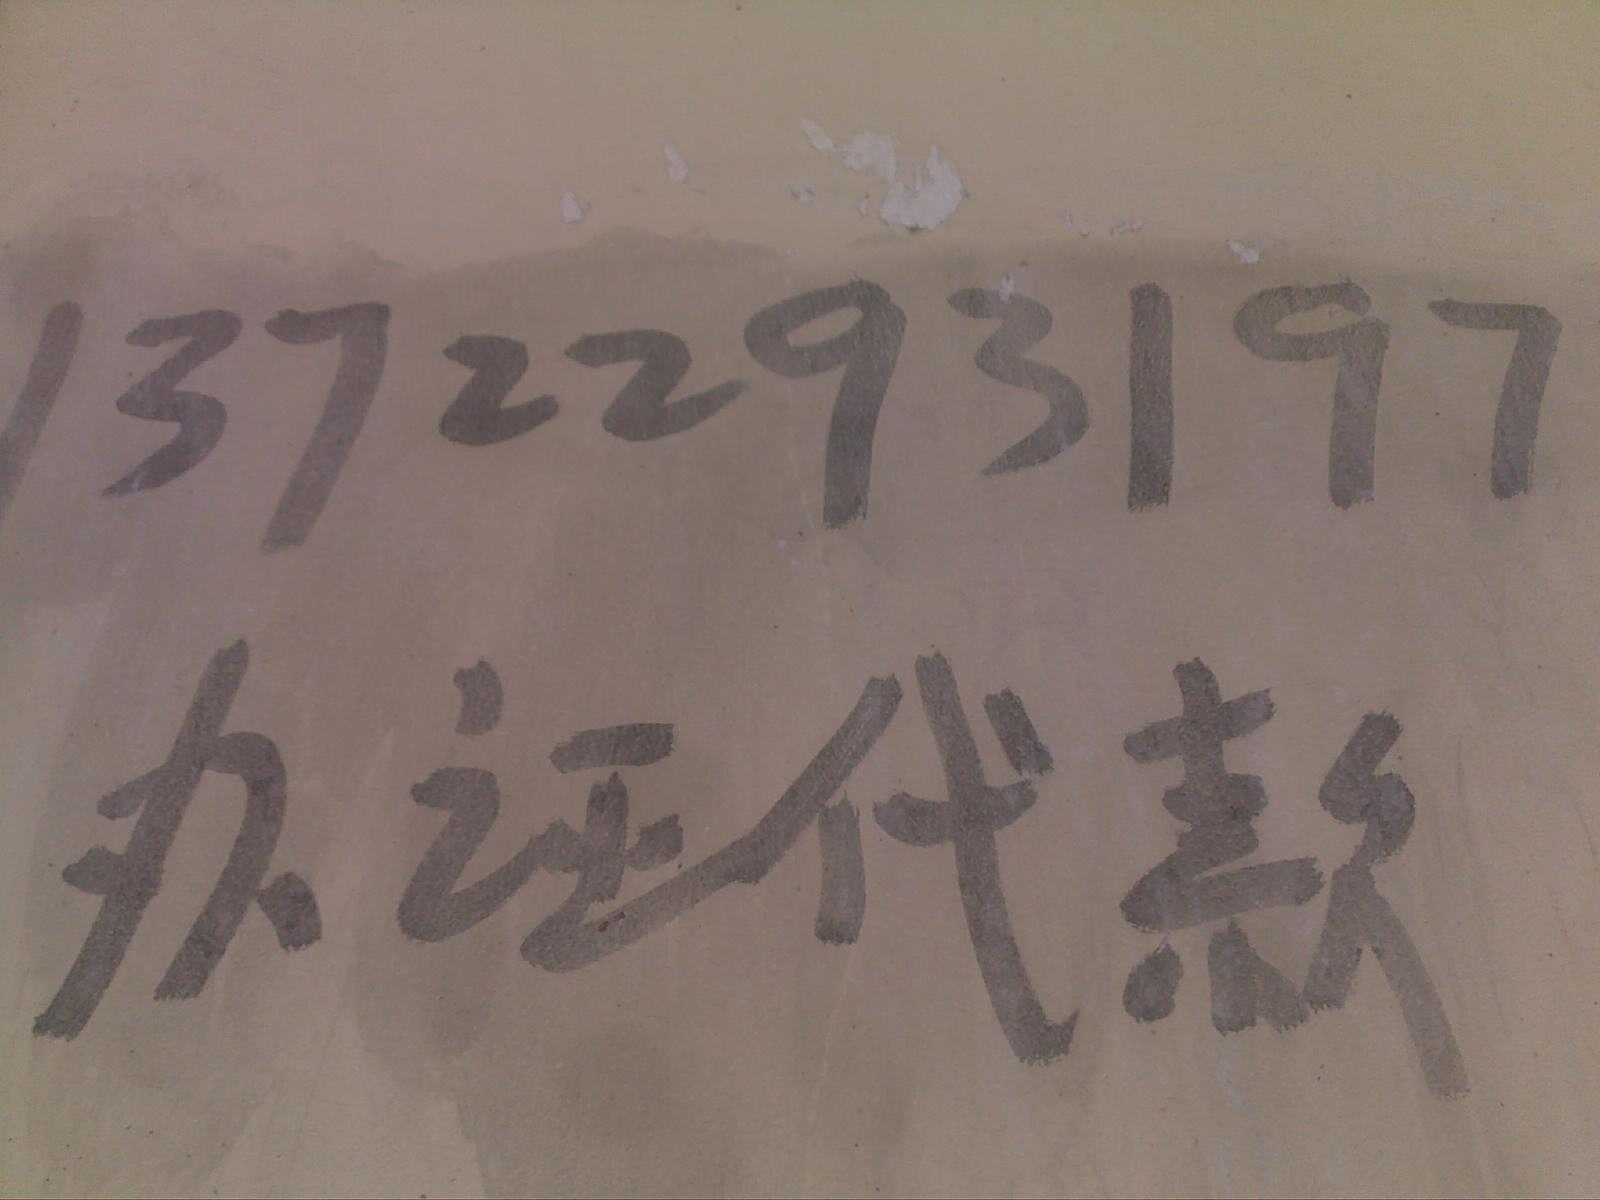 1372293197
办证代款